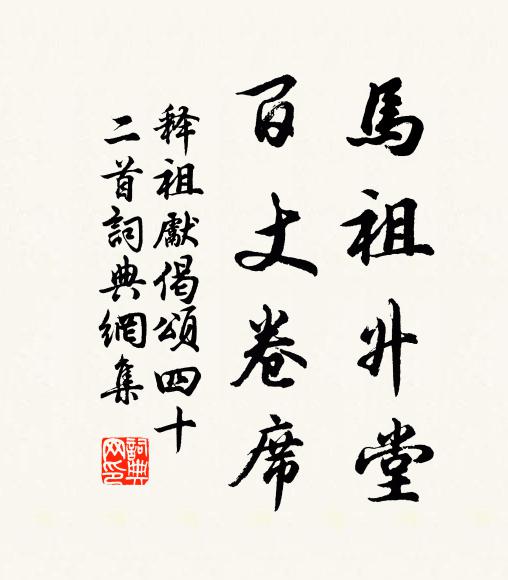 馬祖升堂
百丈卷席
释祖獻偈頌四十
二首詞典網集
詞典网印